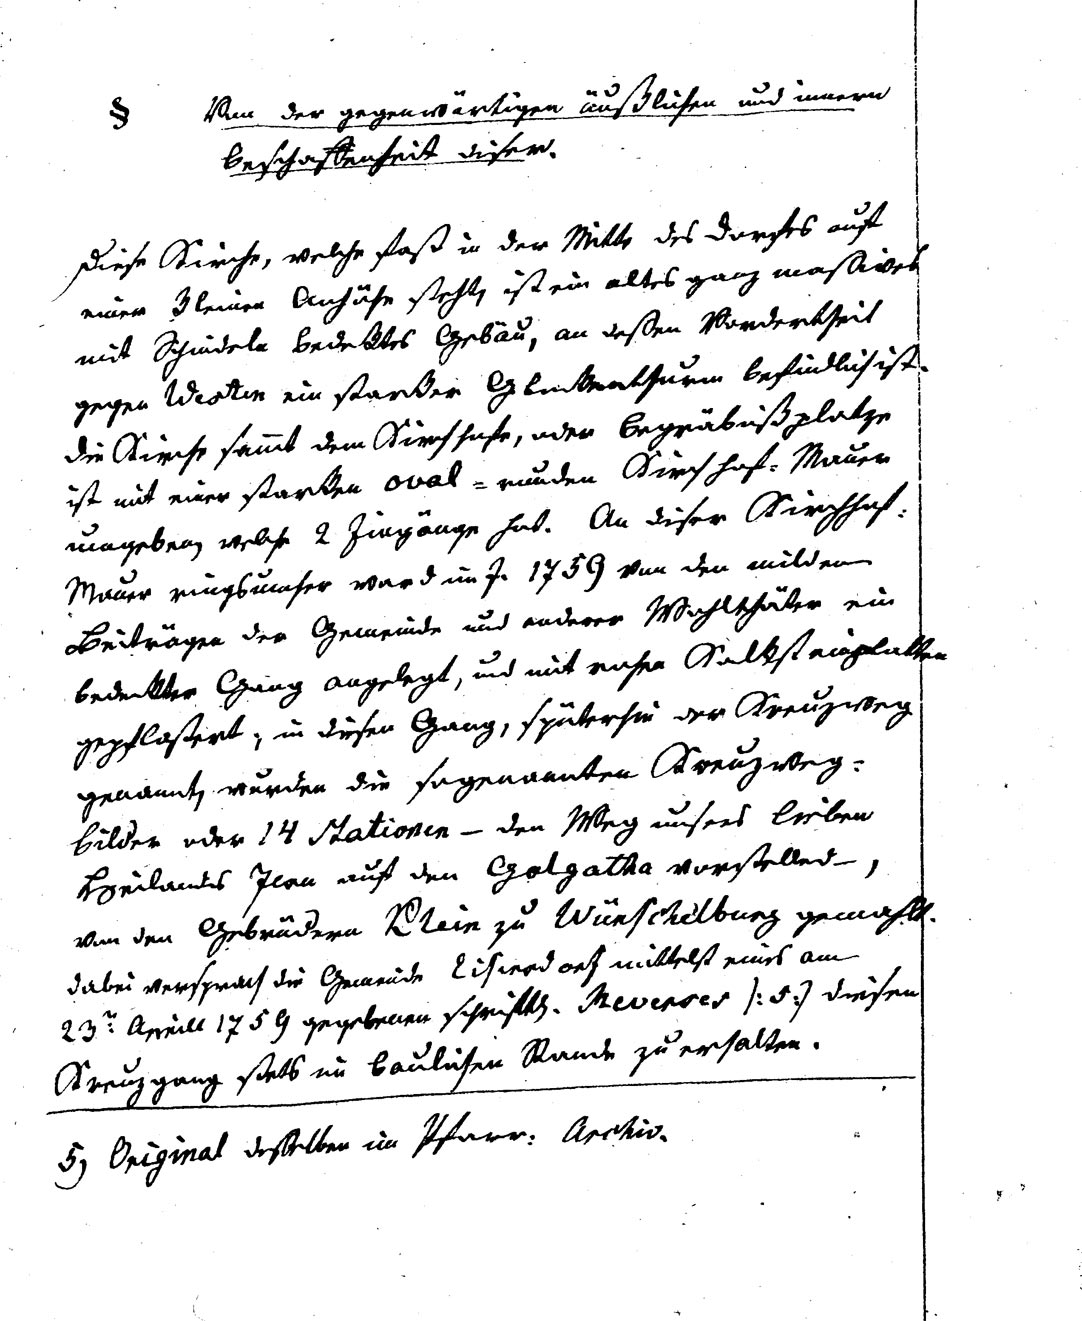 § Von der gegenwärtigen äußlichen und innern
Beschaffenheit diser.
Diese Kirche, welche fast in der Mitte des Dorfes auf
einer kleinen Anhöhe steht, ist ein altes ganz massives
mit Schindeln bedektes Gebäu, an deßen Vordertheil
gegen Westen ein starker Glockenthurm befindlich ist.
die Kirche sam̄t dem Kirchhofe, oder Begräbnißplatze
ist mit einer starken oval = runden Kirchhof= Mauer
umgeben, welche 2 Eingänge hat. An diser Kirchhof=
Mauer ringsumher ward im J. 1759 von den milden
Beiträgen der Gemeinde und anderer Wohlthäter ein
bedekter Gang angelegt, und mit rohen Kalksteinplatten
gepflastert; in diesen Gang, späterhin der Kreuzweg
genannt, wurden die sogenannten Kreuzweg=
bilder oder 14 Stationen – den Weg unsers lieben
Heilandes Jesu auf den Golgatha vorstelled –,
von den Gebrüdern Klein zu Wünschelburg gemahlt.
dabei versprach die Gemeinde Eisersdorf mittelst eines am
23ⁿ: Aprill 1759 gegebenen schriftl. Reverses /: 5:/ diesen
Kreuzgang stets im baulichen Stande zu erhalten.
5, Original desselben im Pfarr: Archiv.